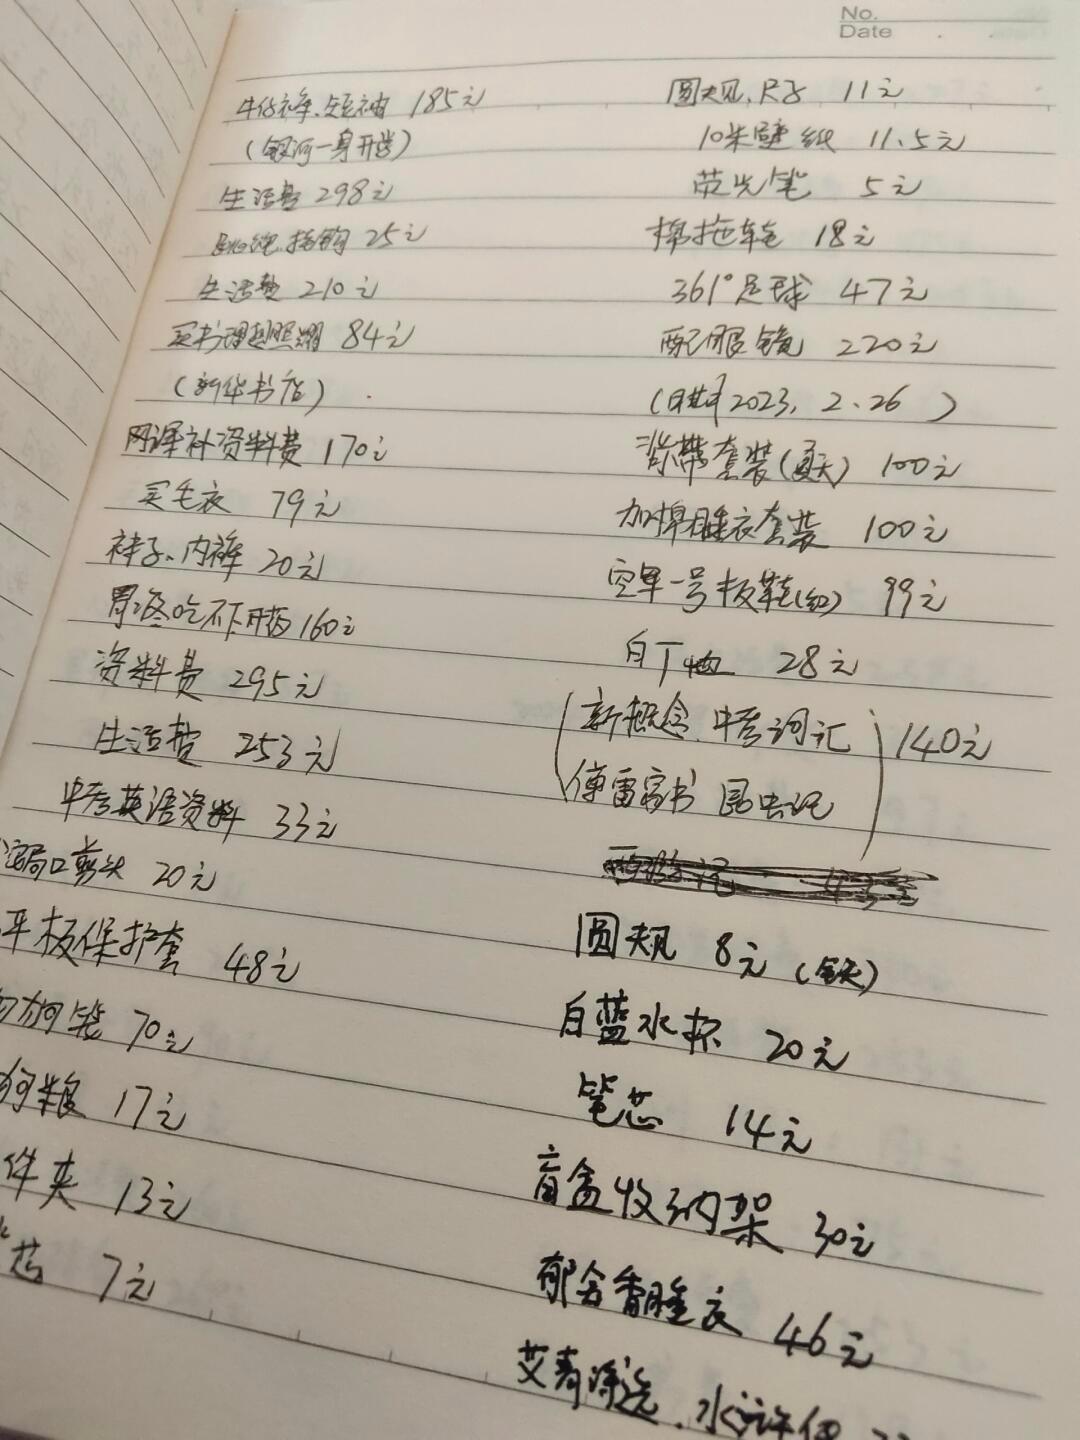 No.
Date
牛仔裤、短袖 185元
(银河一身开学)
生活费 298元
挂钩 25元
生活费 210元
买书理想照耀 84元
(新华书店)
网课补资料费 170元
买毛衣 79元
袜子、内裤 20元
胃疼吃不下开药 160元
资料费 295元
生活费 253元
中考英语资料 33元
口剪头 20元
平板保护套 48元
70元
狗粮 17元
件夹 13元
芯 7元
圆规、尺子 11元
10米壁纸 11.5元
荧光笔 5元
棉拖鞋 18元
361°足球 47元
配眼镜 220元
(日期2023.2.26)
背带套装(夏天) 100元
加棉睡衣套装 100元
空军一号板鞋(红) 99元
白T恤 28元
新概念、中考词汇 140元
傅雷家书 昆虫记
圆规 8元(铁)
白蓝水杯 20元
笔芯 14元
盲盒收纳架 30元
郁金香睡衣 46元
艾青诗选、水浒传